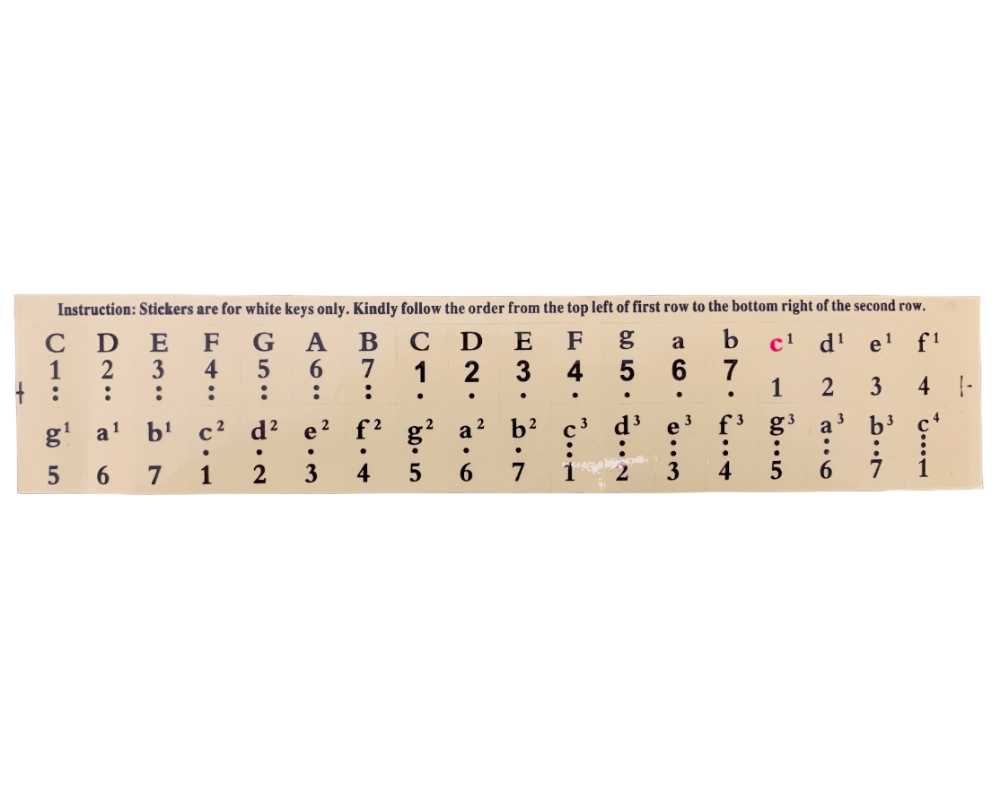 Instruction: Stickers are for white keys only. Kindly follow the order from the top left of first row to the bottom right of the second row.
C D E F G A B C D E F g a b c¹ d¹ e¹ f¹
1 2 3 4 5 6 7 1 2 3 4 5 6 7 1 2 3 4
g¹ a¹ b¹ c² d² e² f² g² a² b² c³ d³ e³ f³ g³ a³ b³ c⁴
5 6 7 1 2 3 4 5 6 7 1 2 3 4 5 6 7 1